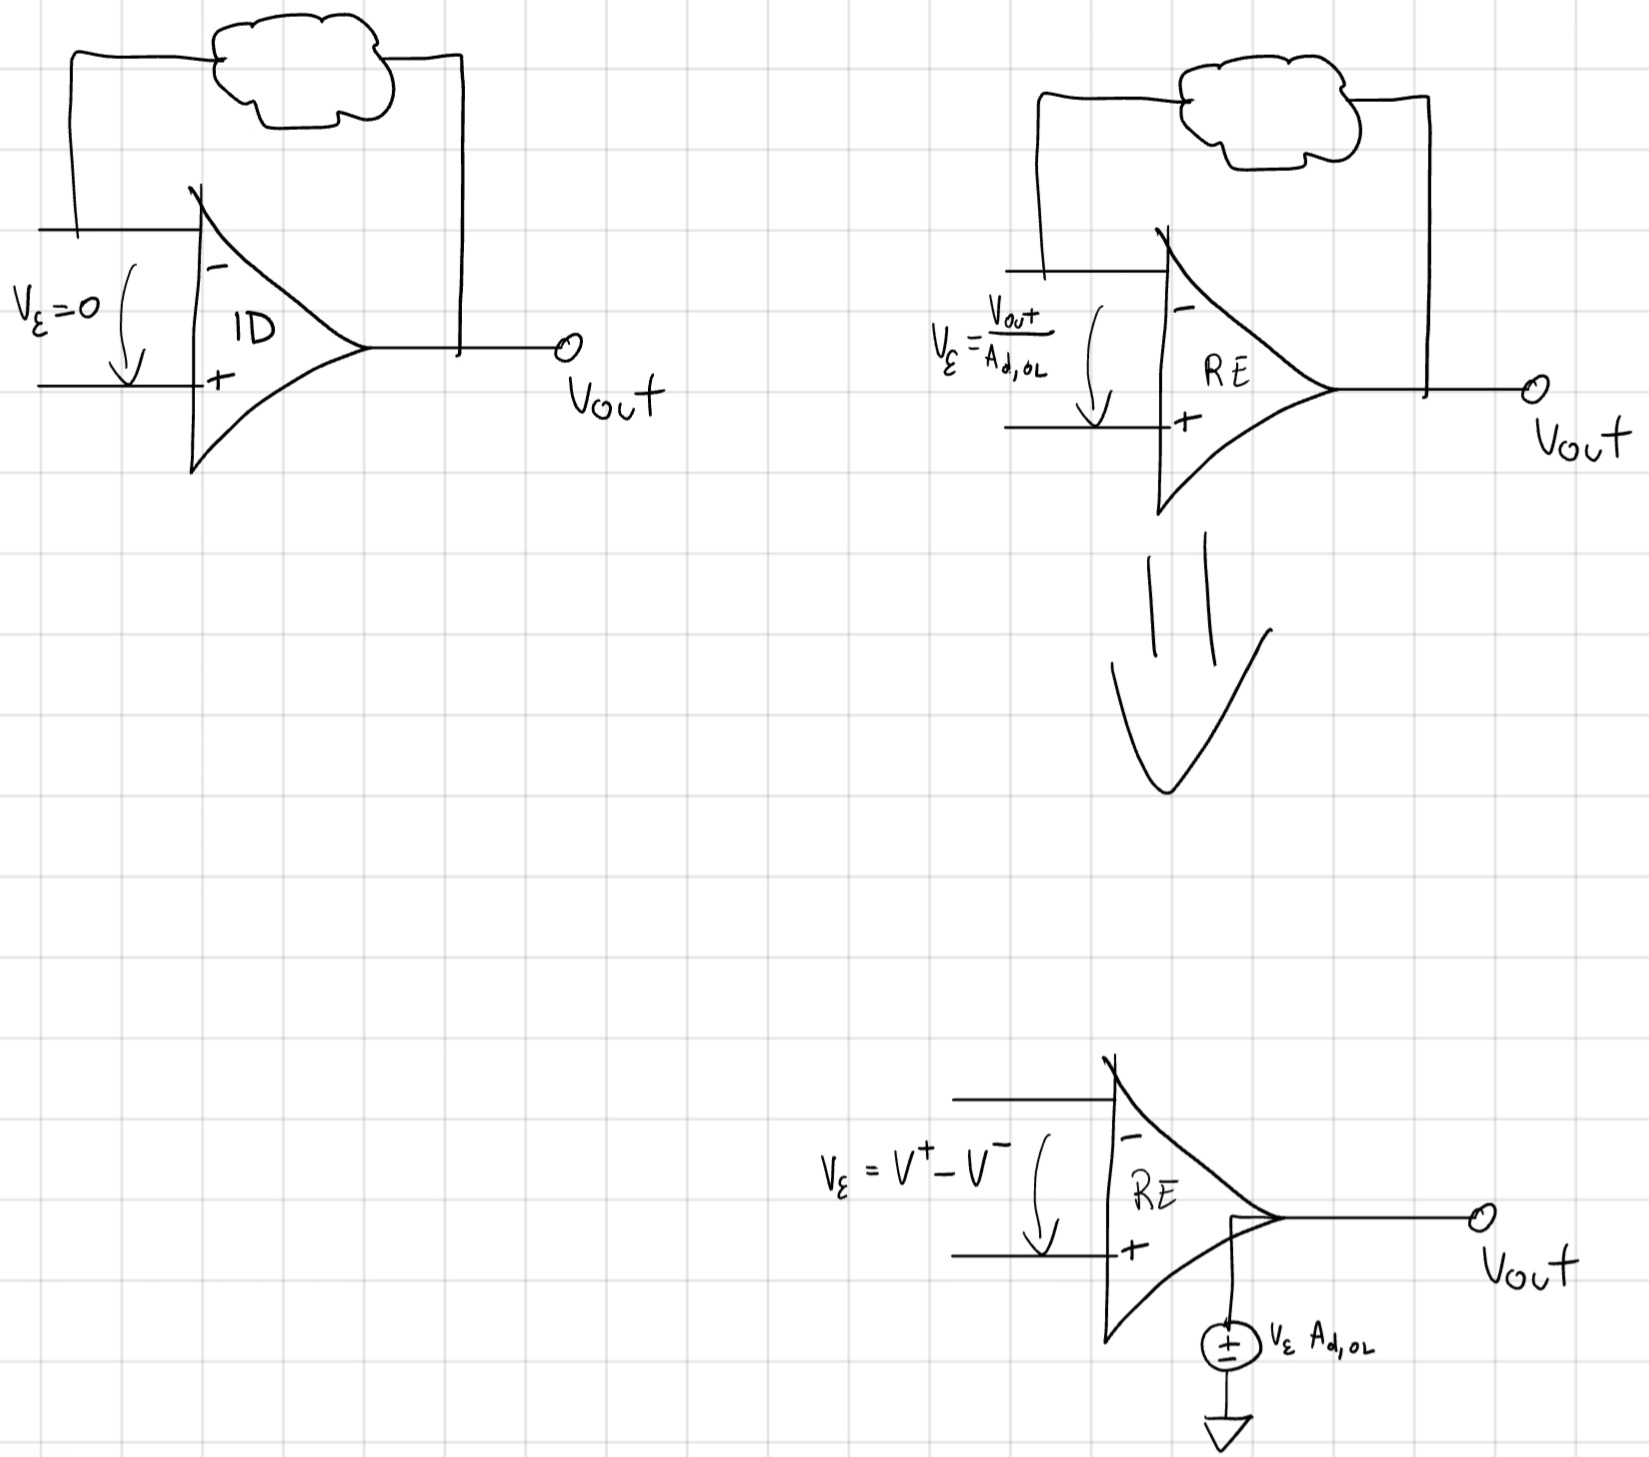 −
Vε=0
ID
+
Vout
−
Vε=Vout/Ad,OL
RE
+
Vout
−
Vε = V⁺−V⁻
RE
+
Vout
±
Vε Ad,OL